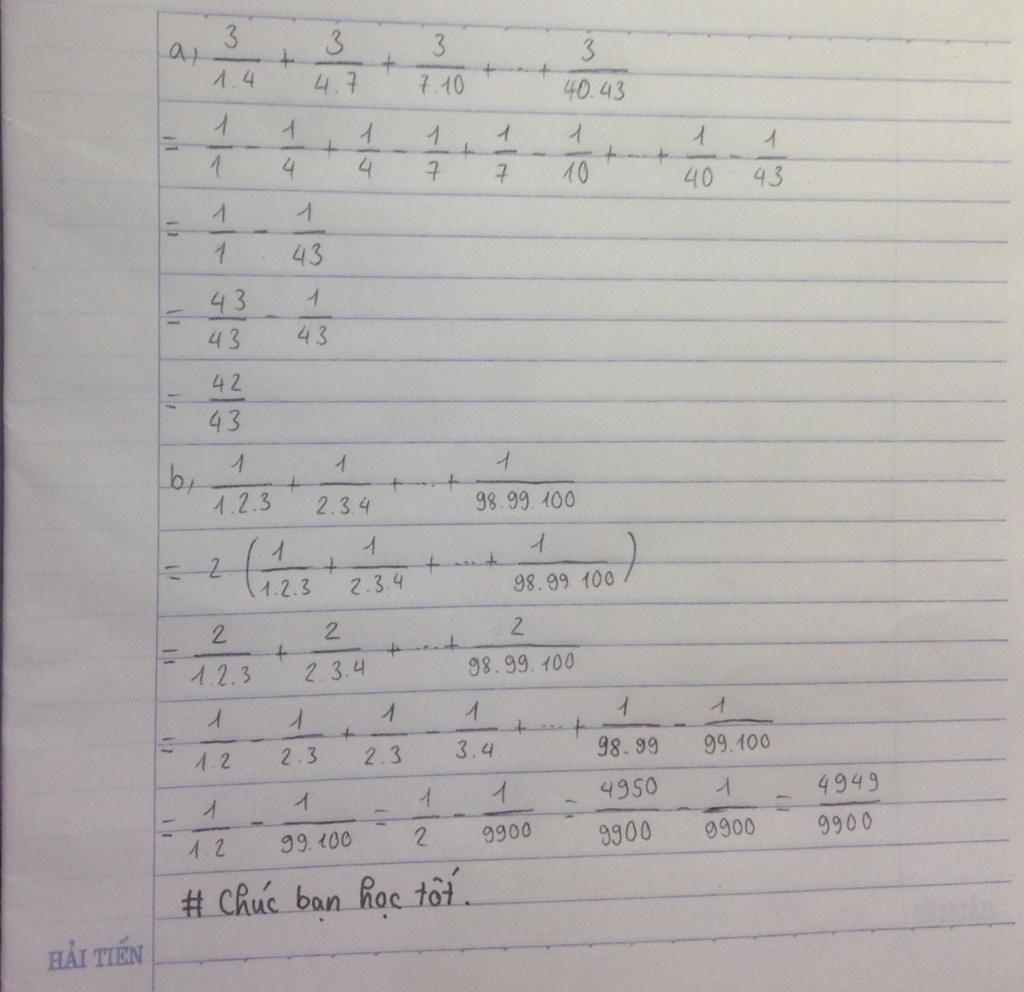 a, 3/1.4 + 3/4.7 + 3/7.10 + ... + 3/40.43
= 1/1 - 1/4 + 1/4 - 1/7 + 1/7 - 1/10 + ... + 1/40 - 1/43
= 1/1 - 1/43
= 43/43 - 1/43
= 42/43
b, 1/1.2.3 + 1/2.3.4 + ... + 1/98.99.100
= 2. (1/1.2.3 + 1/2.3.4 + ... + 1/98.99.100)
= 2/1.2.3 + 2/2.3.4 + ... + 2/98.99.100
= 1/1.2 - 1/2.3 + 1/2.3 - 1/3.4 + ... + 1/98.99 - 1/99.100
= 1/1.2 - 1/99.100 = 1/2 - 1/9900 = 4950/9900 - 1/9900 = 4949/9900
# Chúc bạn học tốt.
HẢI TIẾN